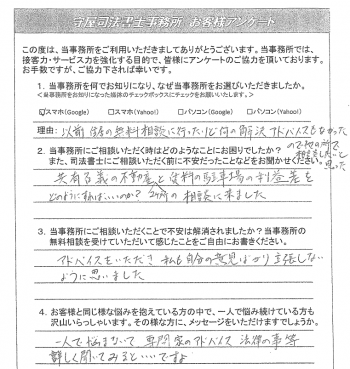 守屋司法書士事務所 お客様アンケート
この度は、当事務所をご利用いただきましてありがとうございます。当事務所では、
接客力・サービス力を強化する目的で、皆様にアンケートのご協力を頂いております。
お手数ですが、ご協力下されば幸いです。
1. 当事務所を何でお知りになり、なぜ当事務所をお選びいただきましたか。
<当事務所をお知りになった媒体のチェックボックスにチェックをお願いいたします。>
☑スマホ(Google) □スマホ(Yahoo!) □パソコン(Google) □パソコン(Yahoo!)
理由: 以前 の無料相談に行ったが何の解決アドバイスもなかった
ので他の所で
相談をしたいと
思った
2. 当事務所にご相談いただく時はどのようなことにお困りでしたか?
また、司法書士にご相談いただく前に不安だったことなどをお聞かせください。
共有名義の不動産と 賃料の駐車場の利益差を
どのように すれば いいのか? の相談に来ました
3. 当事務所にご相談いただくことで不安は解消されましたか?当事務所の
無料相談を受けていただいて感じたことをご自由にお書きください。
アドバイスをいただき 私も自分の意見ばかり主張しない
ように思いました
4. お客様と同じ様な悩みを抱えている方の中で、一人で悩み続けている方も
沢山いらっしゃいます。その様な方に、メッセージをいただけますでしょうか。
一人で悩まないで 専門家のアドバイス 法律の事等
詳しく聞いてみるといいですよ